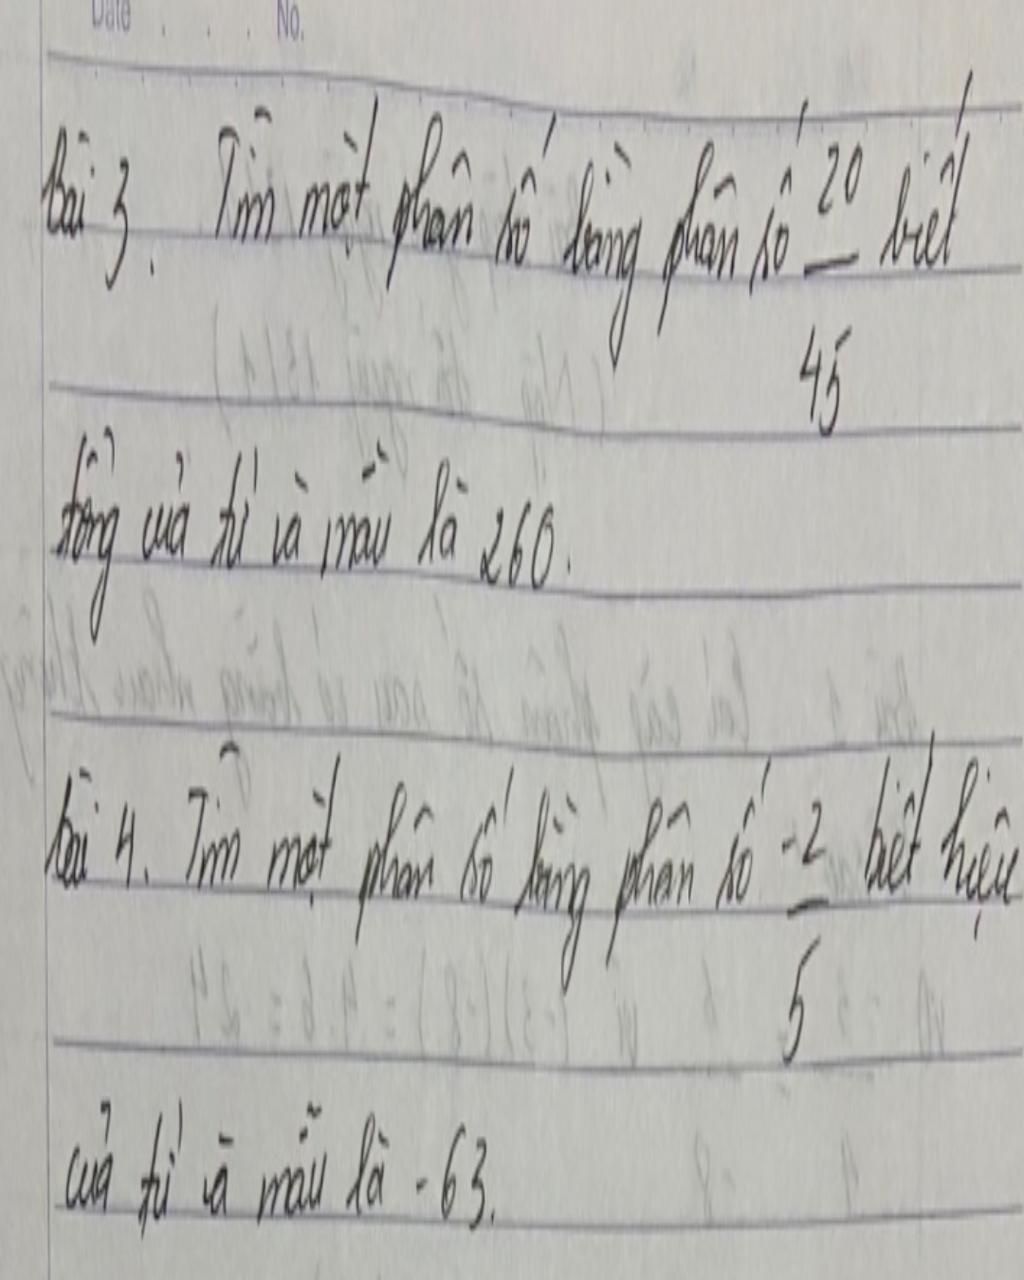 Date . . . No.
Bài 3. Tìm một phân số bằng phân số 20/45 biết
tổng của tử và mẫu là 260.
Bài 4. Tìm một phân số bằng phân số -2/5 biết hiệu
của tử và mẫu là -63.